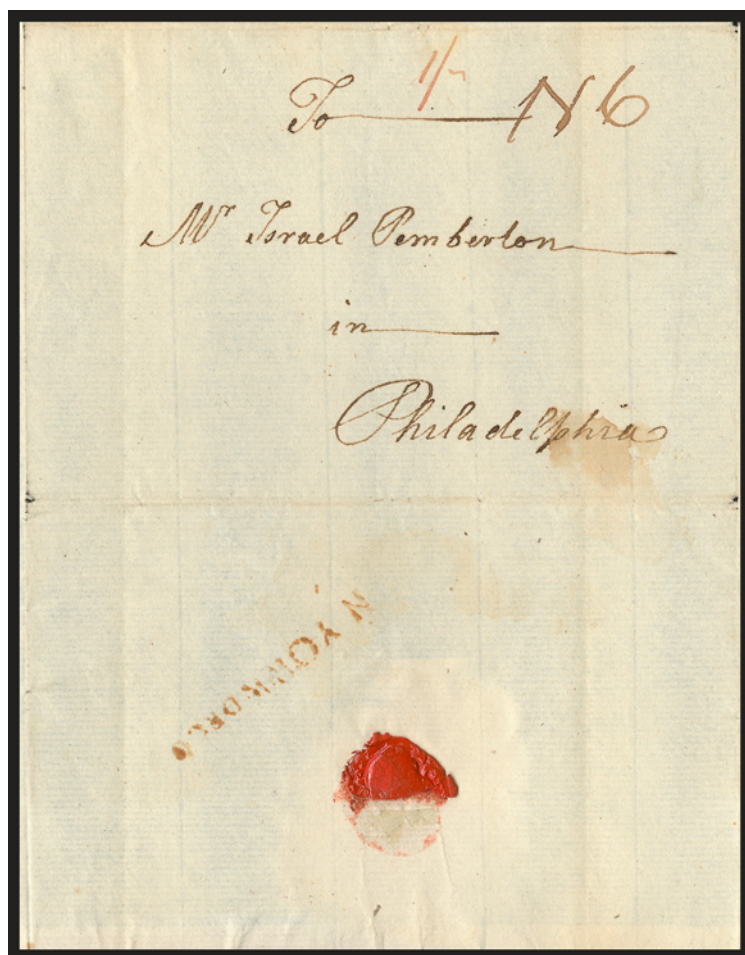 1/-
To N 6
Mr Israel Pemberton
in
Philadelphia
N YORK